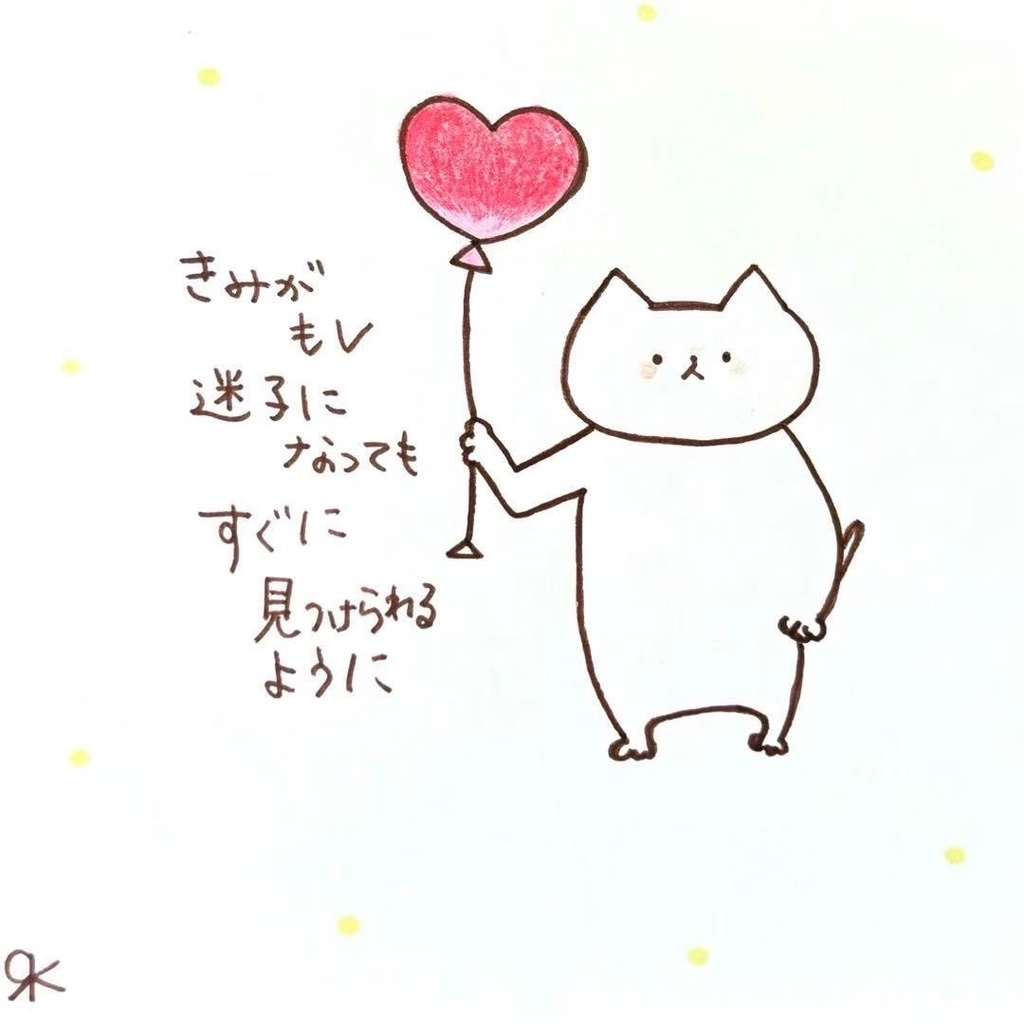 きみが
もし
迷子に
なっても
すぐに
見つけられる
ように